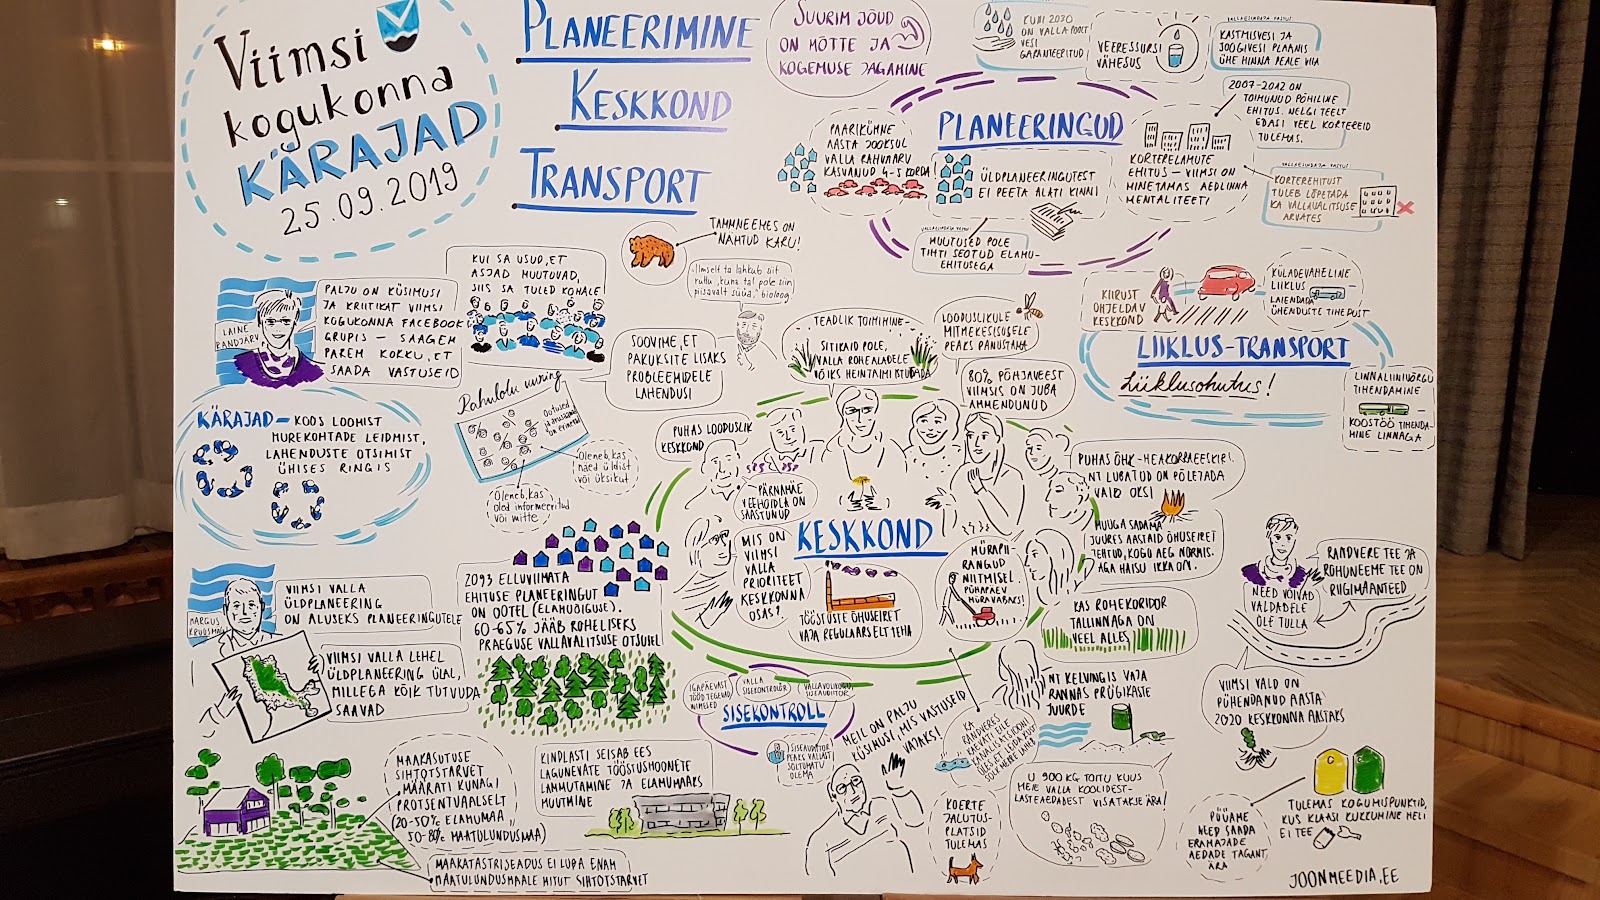 Viimsi
kogukonna
KÄRAJAD
25.09.2019
PLANEERIMINE
KESKKOND
TRANSPORT
SUURIM JÕUD
ON MÕTTE JA
KOGEMUSE JAGAMINE
KUNI 2030
ON VALLA POOLT
VESI
GARANTEERITUD
VEERESSURSI
VÄHESUS
VALLAESINDAJA VASTUS
KASTMISVESI JA
JOOGIVESI PLAANIS
ÜHE HINNA PEALE VIIA
PLANEERINGUD
PAARIKÜMNE
AASTA JOOKSUL
VALLA RAHVAARV
KASVANUD 4-5 KORDA!
ÜLDPLANEERINGUTEST
EI PEETA ALATI KINNI
VALLAESINDAJA VASTUS
MUUTUSED POLE
TIHTI SEOTUD ELAMU-
EHITUSEGA
KORTERELAMUTE
EHITUS - VIIMSI ON
MINETAMAS AEDLINNA
MENTALITEETI
2007-2012 ON
TOIMUNUD PÕHILINE
EHITUS. NELGI TEELT
EDASI VEEL KORTEREID
TULEMAS.
VALLAESINDAJA VASTUS
KORTEREHITUST
TULEB LÕPETADA
KA VALLAVALITSUSE
ARVATES
TAMMNEEMES ON
NÄHTUD KARU!
"Ilmselt ta lahkub siit
ruttu, kuna tal pole siin
piisavalt süüa," bioloog
LAINE
RANDJÄRV
PALJU ON KÜSIMUSI
JA KRIITIKAT VIIMSI
KOGUKONNA FACEBOOK
GRUPIS - SAAGEM
PAREM KOKKU, ET
SAADA VASTUSEID
KUI SA USUD, ET
ASJAD MUUTUVAD,
SIIS SA TULED KOHALE
SOOVIME, ET
PAKUKSITE LISAKS
PROBLEEMIDELE
LAHENDUSI
KÄRAJAD - KOOS LOOMIST
MUREKOHTADE LEIDMIST,
LAHENDUSTE OTSIMIST
ÜHISES RINGIS
Rahulolu uuring
Ootused
ja arusaamad
on erinevad
Oleneb, kas
näed üldist
või üksikut
Oleneb, kas
oled informeeritud
või mitte
TEADLIK TOIMIMINE -
SITIKAID POLE,
VALLA ROHEALADELE
VÕIKS HEINTAIMI ISTUTADA
LOODUSLIKULE
MITMEKESISUSELE
PEAKS PANUSTAMA
80% PÕHJAVEEST
VIIMSIS ON JUBA
AMMENDUNUD
PUHAS LOODUSLIK
KESKKOND
PÄRNAMÄE
VEEHOIDLA ON
SAASTUNUD
KESKKOND
MIS ON
VIIMSI
VALLA
PRIORITEET
KESKKONNA
OSAS?
TÖÖSTUSTE ÕHUSEIRET
VAJA REGULAARSELT TEHA
MÜRAPII-
RANGUD
NIITMISEL.
PÜHAPÄEV
MÜRAVABAKS!
PUHAS ÕHK - HEAKORRAEESKIRI.
NT LUBATUD ON PÕLETADA
VAID OKSI
MUUGA SADAMA
JUURES AASTAID ÕHUSEIRET
TEHTUD, KOGU AEG NORMIS.
AGA HAISU IKKA ON.
KAS ROHEKORIDOR
TALLINNAGA ON
VEEL ALLES?
KIIRUST
OHJELDAV
KESKKOND
KÜLADEVAHELINE
LIIKLUS
LAIENDADA
ÜHENDUSTE TIHEDUST
LIIKLUS-TRANSPORT
Liiklusohutus!
LINNALIINIVÕRGU
TIHENDAMINE
KOOSTÖÖ TIHENDA-
MINE LINNAGA
NEED VÕIVAD
VALDADELE
ÜLE TULLA
RANDVERE TEE JA
ROHUNEEME TEE ON
RIIGIMAANTEED
VIIMSI VALD ON
PÜHENDANUD AASTA
2020 KESKKONNA AASTAKS
MARGUS
KRUUSMÄGI
VIIMSI VALLA
ÜLDPLANEERING
ON ALUSEKS PLANEERINGUTELE
VIIMSI VALLA LEHEL
ÜLDPLANEERING ÜLAL,
MILLEGA KÕIK TUTVUDA
SAAVAD
2093 ELLUVIIMATA
EHITUSE PLANEERINGUT
ON OOTEL (ELAMUÕIGUSE).
60-65% JÄÄB ROHELISEKS
PRAEGUSE VALLAVALITSUSE OTSUSEL
MAAKASUTUSE
SIHTOTSTARVET
MÄÄRATI KUNAGI
PROTSENTUAALSELT
(20-50% ELAMUMAA,
50-80% MAATULUNDUSMAA)
MAAKATASTRISEADUS EI LUBA ENAM
MAATULUNDUSMAALE MITUT SIHTOTSTARVET
KINDLASTI SEISAB EES
LAGUNEVATE TÖÖSTUSHOONETE
LAMMUTAMINE JA ELAMUMAAKS
MUUTMINE
IGAPÄEVAST
TÖÖD TEGEVAD
INIMESED
VALLA
SISEKONTROLÖR
VALLAVOLIKOGU
SISEAUDIITOR
SISEKONTROLL
SISEAUDIITOR
PEAKS VALLAST
SÕLTUMATU
OLEMA
MEIL ON PALJU
KÜSIMUSI, MIS VASTUSEID
VAJAKS!
KA
RANDVERES
KOERTE
JALUTUS-
PLATSID
TULEMAS
NT KELVINGIS VAJA
RANNAS PRÜGIKASTE
JUURDE
U 900 KG TOITU KUUS
MEIE VALLA KOOLIDEST-
LASTEAEDADEST VISATAKSE ÄRA!
PÜÜAME
NEED SAADA
ERAMAJADE
AEDADE TAGANT
ÄRA
TULEMAS KOGUMISPUNKTID,
KUS KLAASI KUKKUMINE HELI
EI TEE
JOONMEEDIA.EE